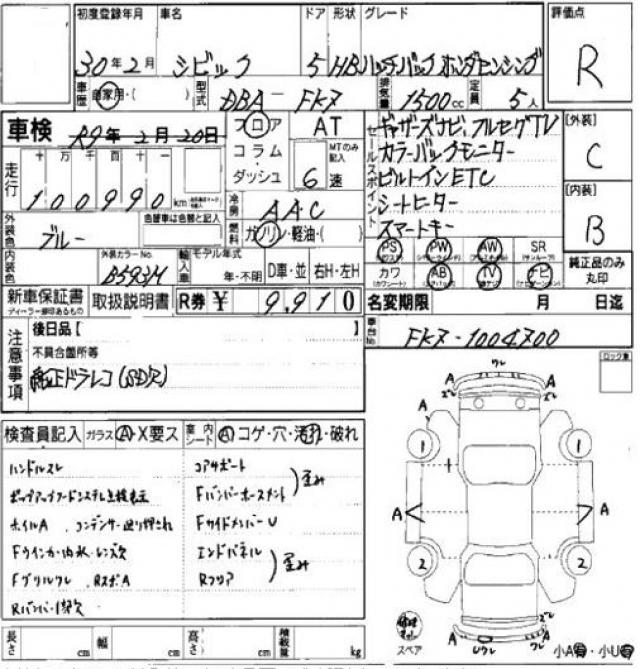 初度登録年月 車名 ドア 形状 グレード 評価点
30年2月 シビック 5 HB ハッチバック ホンダセンシング R
車歴 自家用・( ) 型式 DBA-FK7 排気量 1500cc 定員 5人
車検 R9年2月20日 フロア コラム ダッシュ AT MTのみ記入 6速
セールスポイント
ギャザーズナビ、フルセグTV
カラーバックモニター
ビルトインETC
シートヒーター
スマートキー
[外装] C
[内装] B
走行 十万千百十一
100990 km
冷房 AAC
外装色 ブルー 色替車は色替と記入
燃料 ガソリン・軽油・( )
内装色 外装カラーNo. B593M 輸入車 モデル年式 年・不明 D車・並 右H・左H
PS PW AW SR
カワ AB TV ナビ
純正品のみ丸印
新車保証書 取扱説明書 R券 ¥ 9,910
ディーラー印あるもの
名変期限 月 日迄
車台No. FK7-1004700
注意事項
後日品【 】
不具合箇所等
純正ドラレコ(SD欠)
検査員記入 ガラス A・X要ス 室内シート A コゲ・穴・汚れ・破れ
ハンドルスレ コアサポート
ポップアップフードシステム点検表示 Fバンパーホースメント 歪み
ホイルA、コンデンサー廻り押され FサイドメンバーU
Fウインカー内水・レンズ欠 エンドパネル
Fグリルワレ、RスポA Rフロア 歪み
Rバンパー1部欠
ロック車
ワレ
A A
ズレ ズレ
A A
1 1
A A
2 2
ズレ
A A
Uワレ
修理キット
スペア
小A有・小U有
長さ cm 幅 cm 高さ cm 積載量 kg